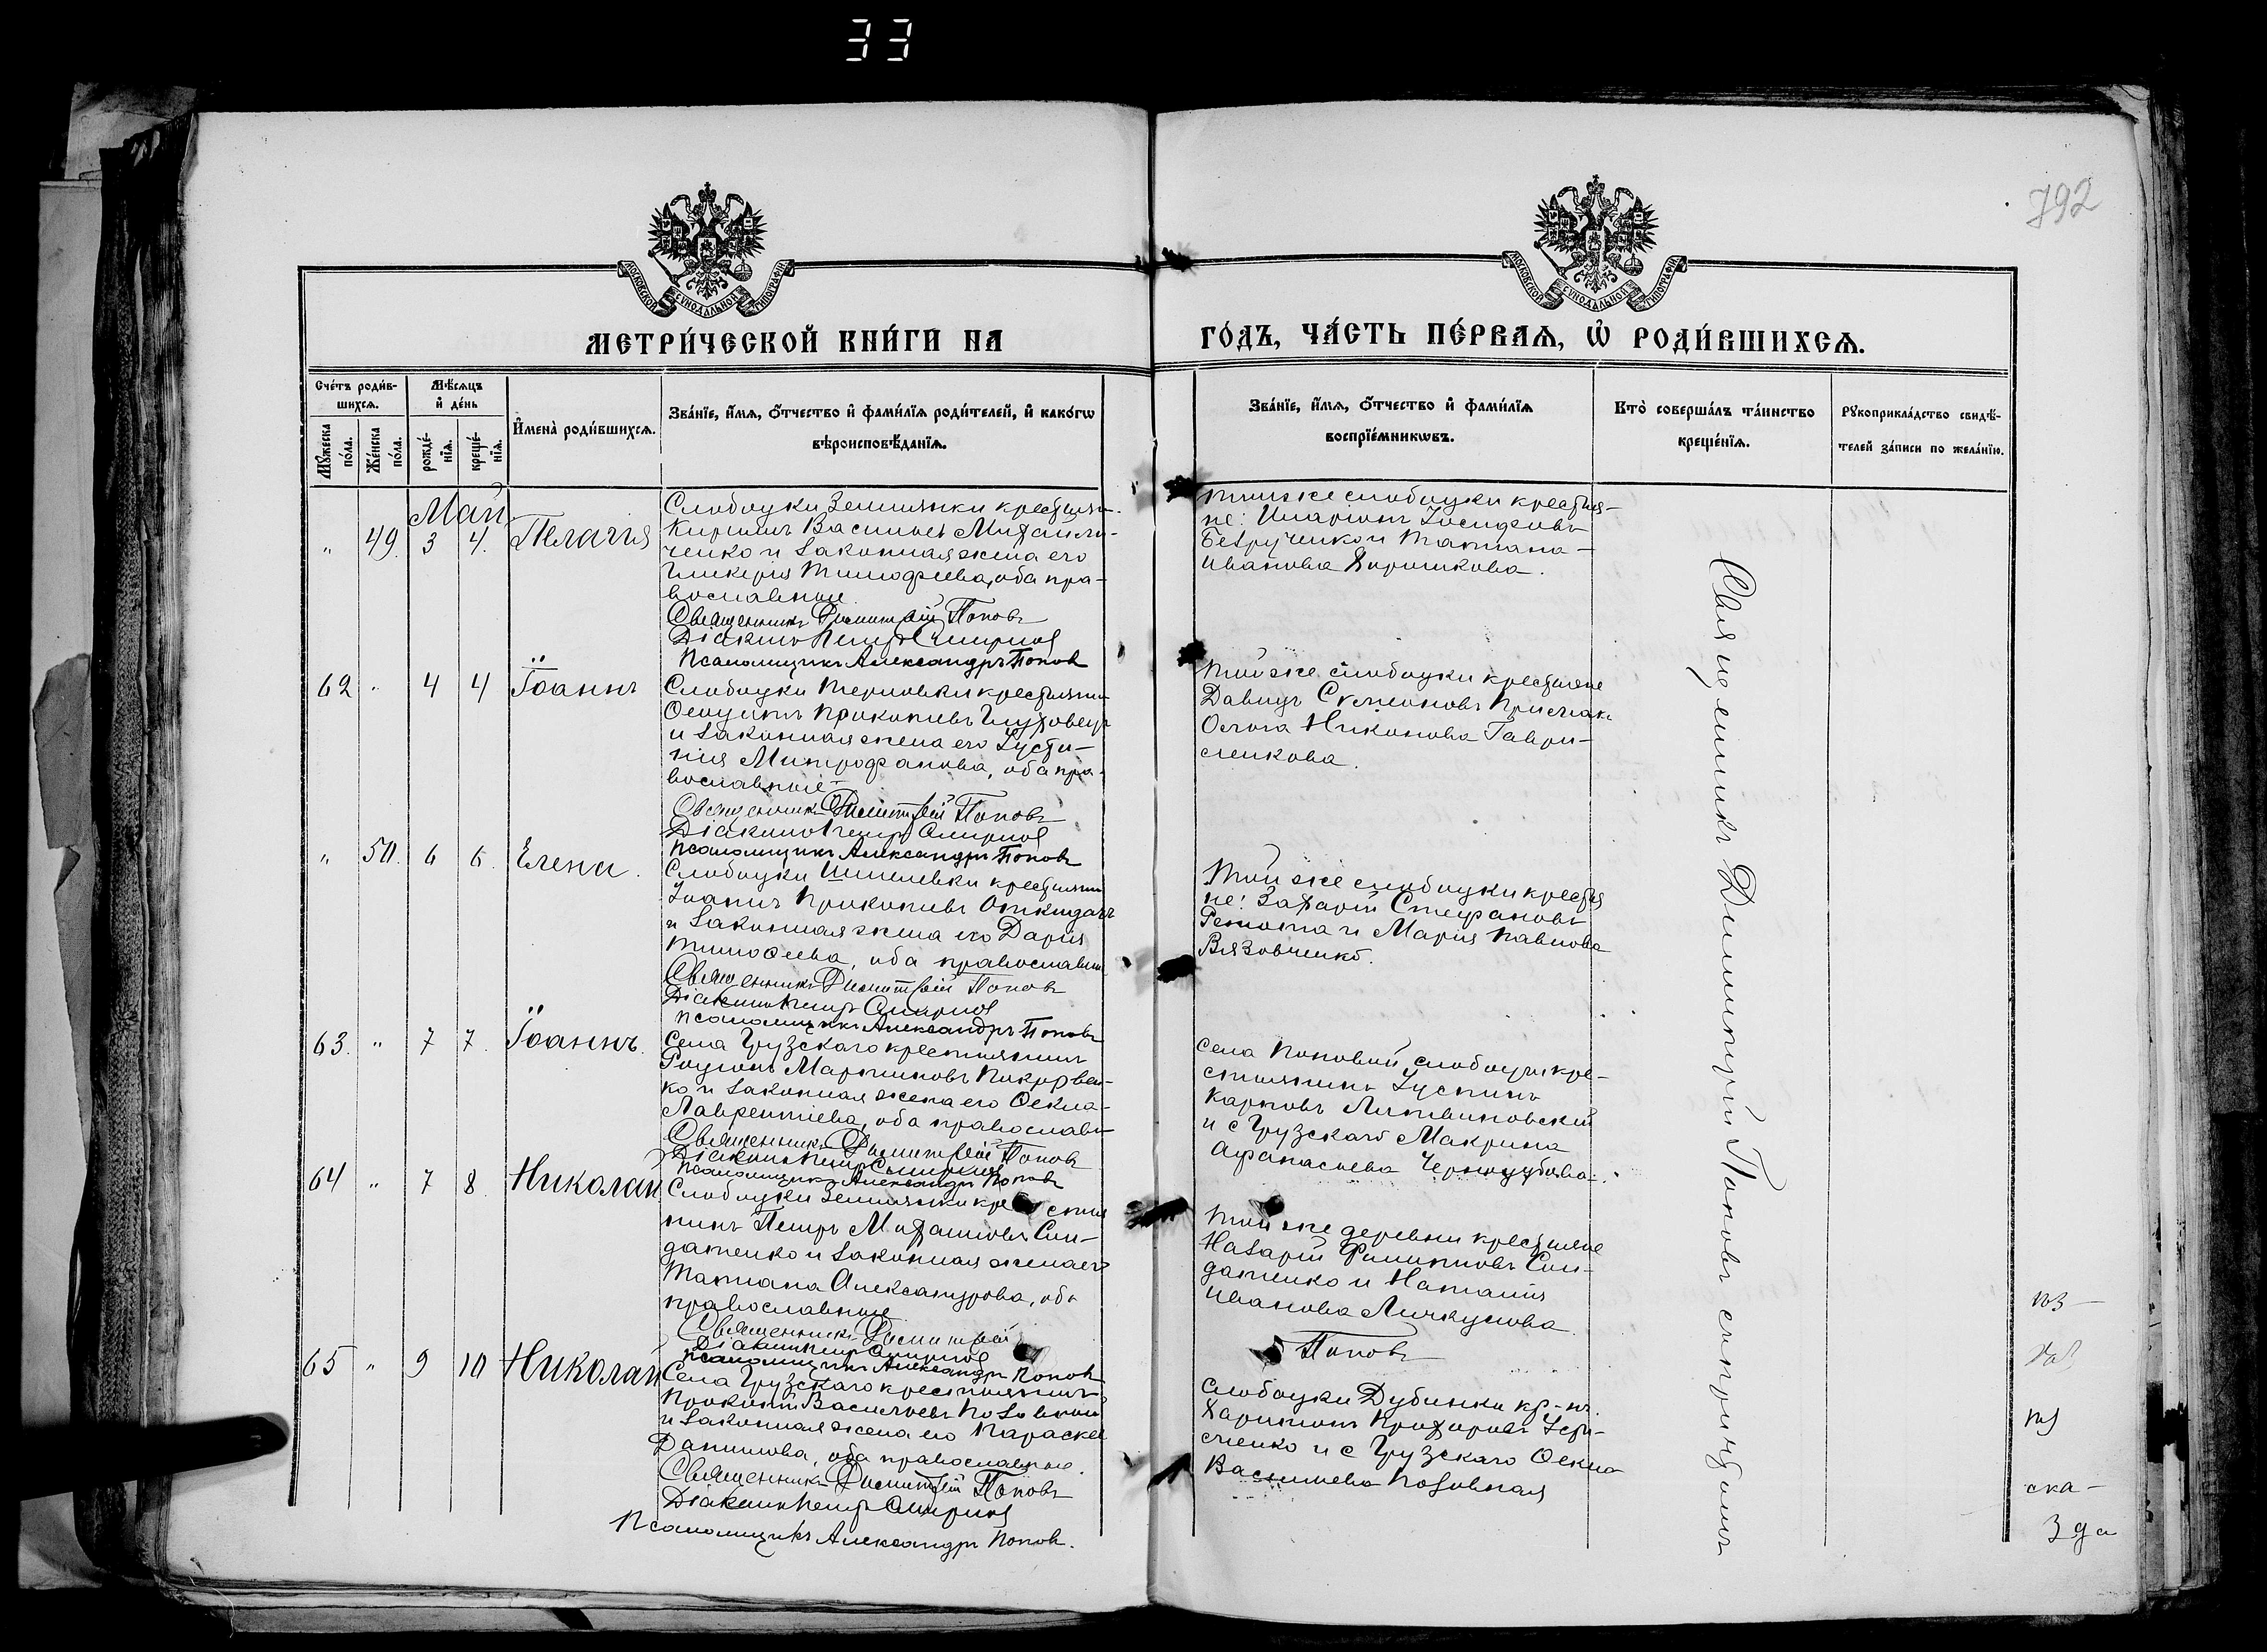 33
792
МОСКОВСКОЙ СУНОДАЛЬНОЙ ТИПОГРАФІИ
МОСКОВСКОЙ СУНОДАЛЬНОЙ ТИПОГРАФІИ
МЕТРИ́ЧЕСКОЙ КНИ́ГИ НА
ГО́ДЪ, ЧА́СТЬ ПЕ́РВАѦ, Ѡ РОДИ́ВШИХСѦ.
Сче́тъ роди́в-
шихсѧ.
Мѣ́сѧцъ
и де́нь
Мꙋ́жеска
по́ла.
Же́нска
по́ла.
рожде́-
нїѧ.
креще́-
нїѧ.
Имена̀ роди́вшихсѧ.
Зва́нїе, и́мѧ, о́тчество и фами́лїѧ роди́телей, и како́гѡ
вѣроисповѣ́данїѧ.
Зва́нїе, и́мѧ, о́тчество и фами́лїѧ
воспрїе́мникѡвъ.
Кто̀ соверша́лъ та́инство
креще́нїѧ.
Рꙋкоприкла́дство свидѣ́-
телей за́писи по жела́нїю.
Май
" 49. 3 4. Пелагія
Слободки Землянки крестьян.
Кириллъ Васильевъ Михайли-
ченко и законная жена его
Гликерія Тимофеева, оба пра-
вославные
Священникъ Димитрій Попов
Діаконъ Петръ Смирнов
Псаломщикъ Александръ Попов
Той же слободки крестья-
не: Иларіонъ Іосифовъ
и Татіана
Иванова
62 " 4 4 Іоаннъ
Слободки Терновки крестьянин
Прокопіевъ Глуховец
и законная жена его Іусти-
нія Митрофанова, оба пра-
вославные
Священникъ Димитрій Попов
Діаконъ Петръ Смирнов
Псаломщикъ Александръ Попов
Той же слободки крестьяне
Давидъ Симеоновъ
Ольга Никонова Гаври-
сенкова.
" 50. 6 6. Елена.
Слободки Шепелевки крестьянин
Іоаннъ Прокопіевъ
и законная жена его Дарія
Тимофеева, оба православн
Священникъ Димитрій Попов
Діаконъ Петръ Смирнов
Псаломщикъ Александръ Попов
Той же слободки крестья
не: Захарій Стефановъ
и Марія Павлова
Вязовченко.
63. " 7 7. Іоаннъ.
Села Грузскаго крестьянинъ
Родіонъ Мартиновъ
ко и законная жена его Оекла
Лаврентіева, оба православн
Священникъ Димитрій Попов
Діаконъ Петръ Смирнов
Псаломщикъ Александръ Попов
Села Поповой слободы кре-
стьянинъ Іустинъ
Карповъ Литвиновскій
и с Грузскаго Макрина
Афанасьева
64 " 7 8. Николай
Слободки Землянки крестья
нинъ Петръ Михайловъ Сол-
датенко и законная жена его
Татіана Александрова, оба
православные
Священникъ Димитрій
Діаконъ Петръ Смирнов
Псаломщикъ Александръ Попов
Той же деревни крестьяне
Назарій Филипповъ Сол-
датенко и Наталія
Иванова
Попов
65 " 9 10 Николай
Села Грузскаго крестьянинъ
Прокопій Васильевъ Позовной
и законная жена его Параскев
Данилова, оба православные.
Священникъ Димитрій Попов
Діаконъ Петръ Смирнов
Псаломщикъ Александръ Попов.
Слободки Дубинки кр-нъ.
Харитонъ
и с Грузскаго Оекла
Васильева Позовная
Священникъ Димитрій Поповъ съ причтомъ
ска-